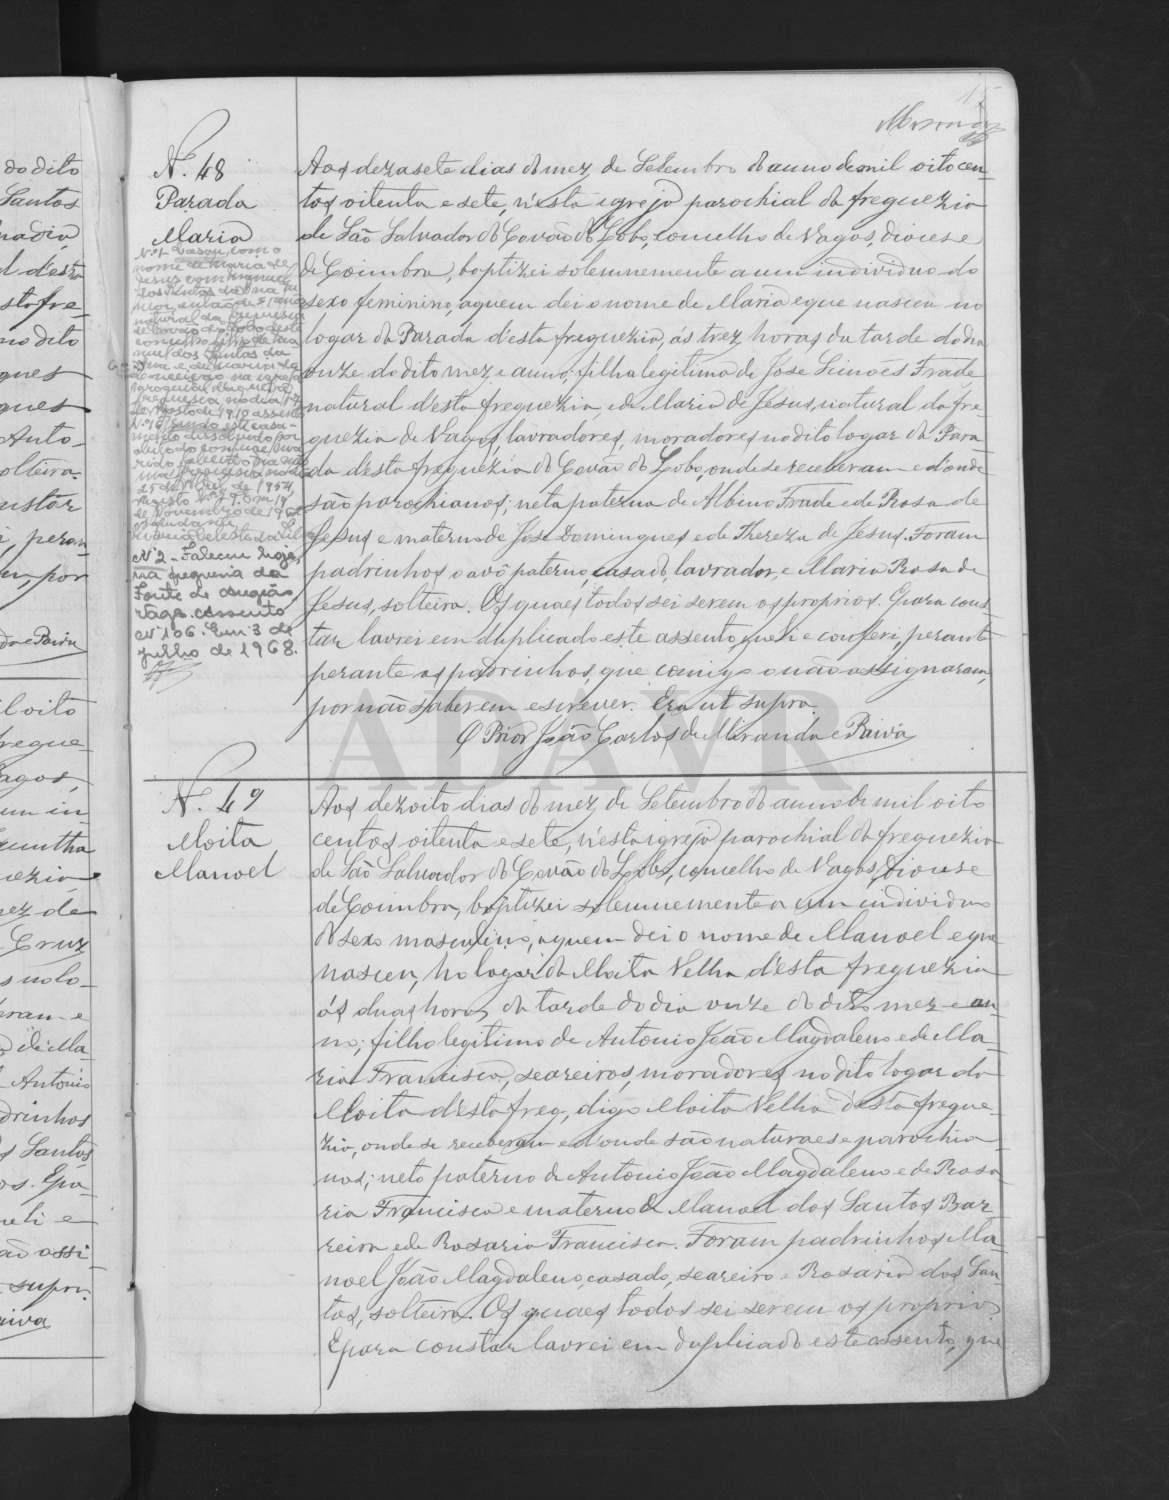 15
Miranda
N.º 48
Parada
Maria
Nº 1 Casou, com o
nome de Maria de
Jesus com Manuel
dos Santos
natural da freguesia
de Covão do Lobo, deste
concelho, filho de Ma
nuel dos Santos da
e de Maria
da Conceição na igreja
paroquial daquela
freguesia no dia 17
de Agosto de 1910 assento
Nº 16. Sendo este casa-
mento dissolvido por
óbito do conjuge ma
rido falecido
freguesia no dia
25 de Abril de 1954
19
de Novembro de 196
O Ajudante,
Celeste da Silva
Nº 2 - Faleceu hoje,
na freguesia da
Fonte de Angeão
Vagos. Assento
Nº 106. Em 3 de
julho de 1968.
Aos dezasete dias do mez de Setembro do anno de mil oito cen-
tos oitenta e sete, n'esta igreja parochial da freguezia
de São Salvador do Covão do Lobo, concelho de Vagos, diocese
de Coimbra, baptizei solemnemente a um individuo do
sexo feminino, a quem dei o nome de Maria e que nasceu no
logar da Parada d'esta freguezia, ás trez horas da tarde do dia
onze do dito mez e anno, filha legitima de José Simões Frade
natural d'esta freguezia, e de Maria de Jesus, natural da fre-
guezia de Vagos, lavradores, moradores no dito logar da Para
da d'esta freguezia do Covão do Lobo, onde se receberam e d'onde
são parochianos; neta paterna de Albino Frade e de Rosa de
Jesus e materna de José Domingues e de Thereza de Jesus. Foram
padrinhos o avô paterno, casado, lavrador, e Maria Rosa de
Jesus, solteira. Os quaes todos sei serem os proprios. E para cons
tar lavrei em duplicado este assento, que li e conferi, perante
perante os padrinhos, que comigo o não assignaram,
por não saberem escrever. Era ut supra.
O Prior João Carlos de Miranda e Paiva
N.º 49
Moita
Manoel
Aos dezoito dias do mez de Setembro do anno de mil oito
centos oitenta e sete, n'esta igreja parochial da freguezia
de São Salvador do Covão do Lobo, concelho de Vagos, Diocese
de Coimbra, baptizei solemnemente a um individuo
do sexo masculino, a quem dei o nome de Manoel e que
nasceu, no logar da Moita Velha d'esta freguezia
ás duas horas da tarde do dia onze do dito mez e an-
no; filho legitimo de Antonio João Magdaleno e de Ma-
ria Francisca, seareiros, moradores no dito logar da
Moita d'esta freg, digo Moita Velha d'esta fregue-
zia, onde se receberam e d'onde são naturaes e parochia-
nos; neto paterno de Antonio João Magdaleno e de Rosa
ria Francisca e materno de Manoel dos Santos Bar-
reira e de Rosaria Francisca. Foram padrinhos Ma-
noel João Magdaleno, casado, seareiro e Rosaria dos San-
tos, solteira. Os quaes todos sei serem os proprios
E para constar lavrei em duplicado este assento, que
do dito
Santos
fre-
no dito
gues
gues
Anto-
solteira.
por
e Paiva
il oito
fregue-
agos,
um in-
uintha
uezia
ez de
Cruz
Ma-
Antonio
drinhos
Santos
supra.
aiva
ADAVR